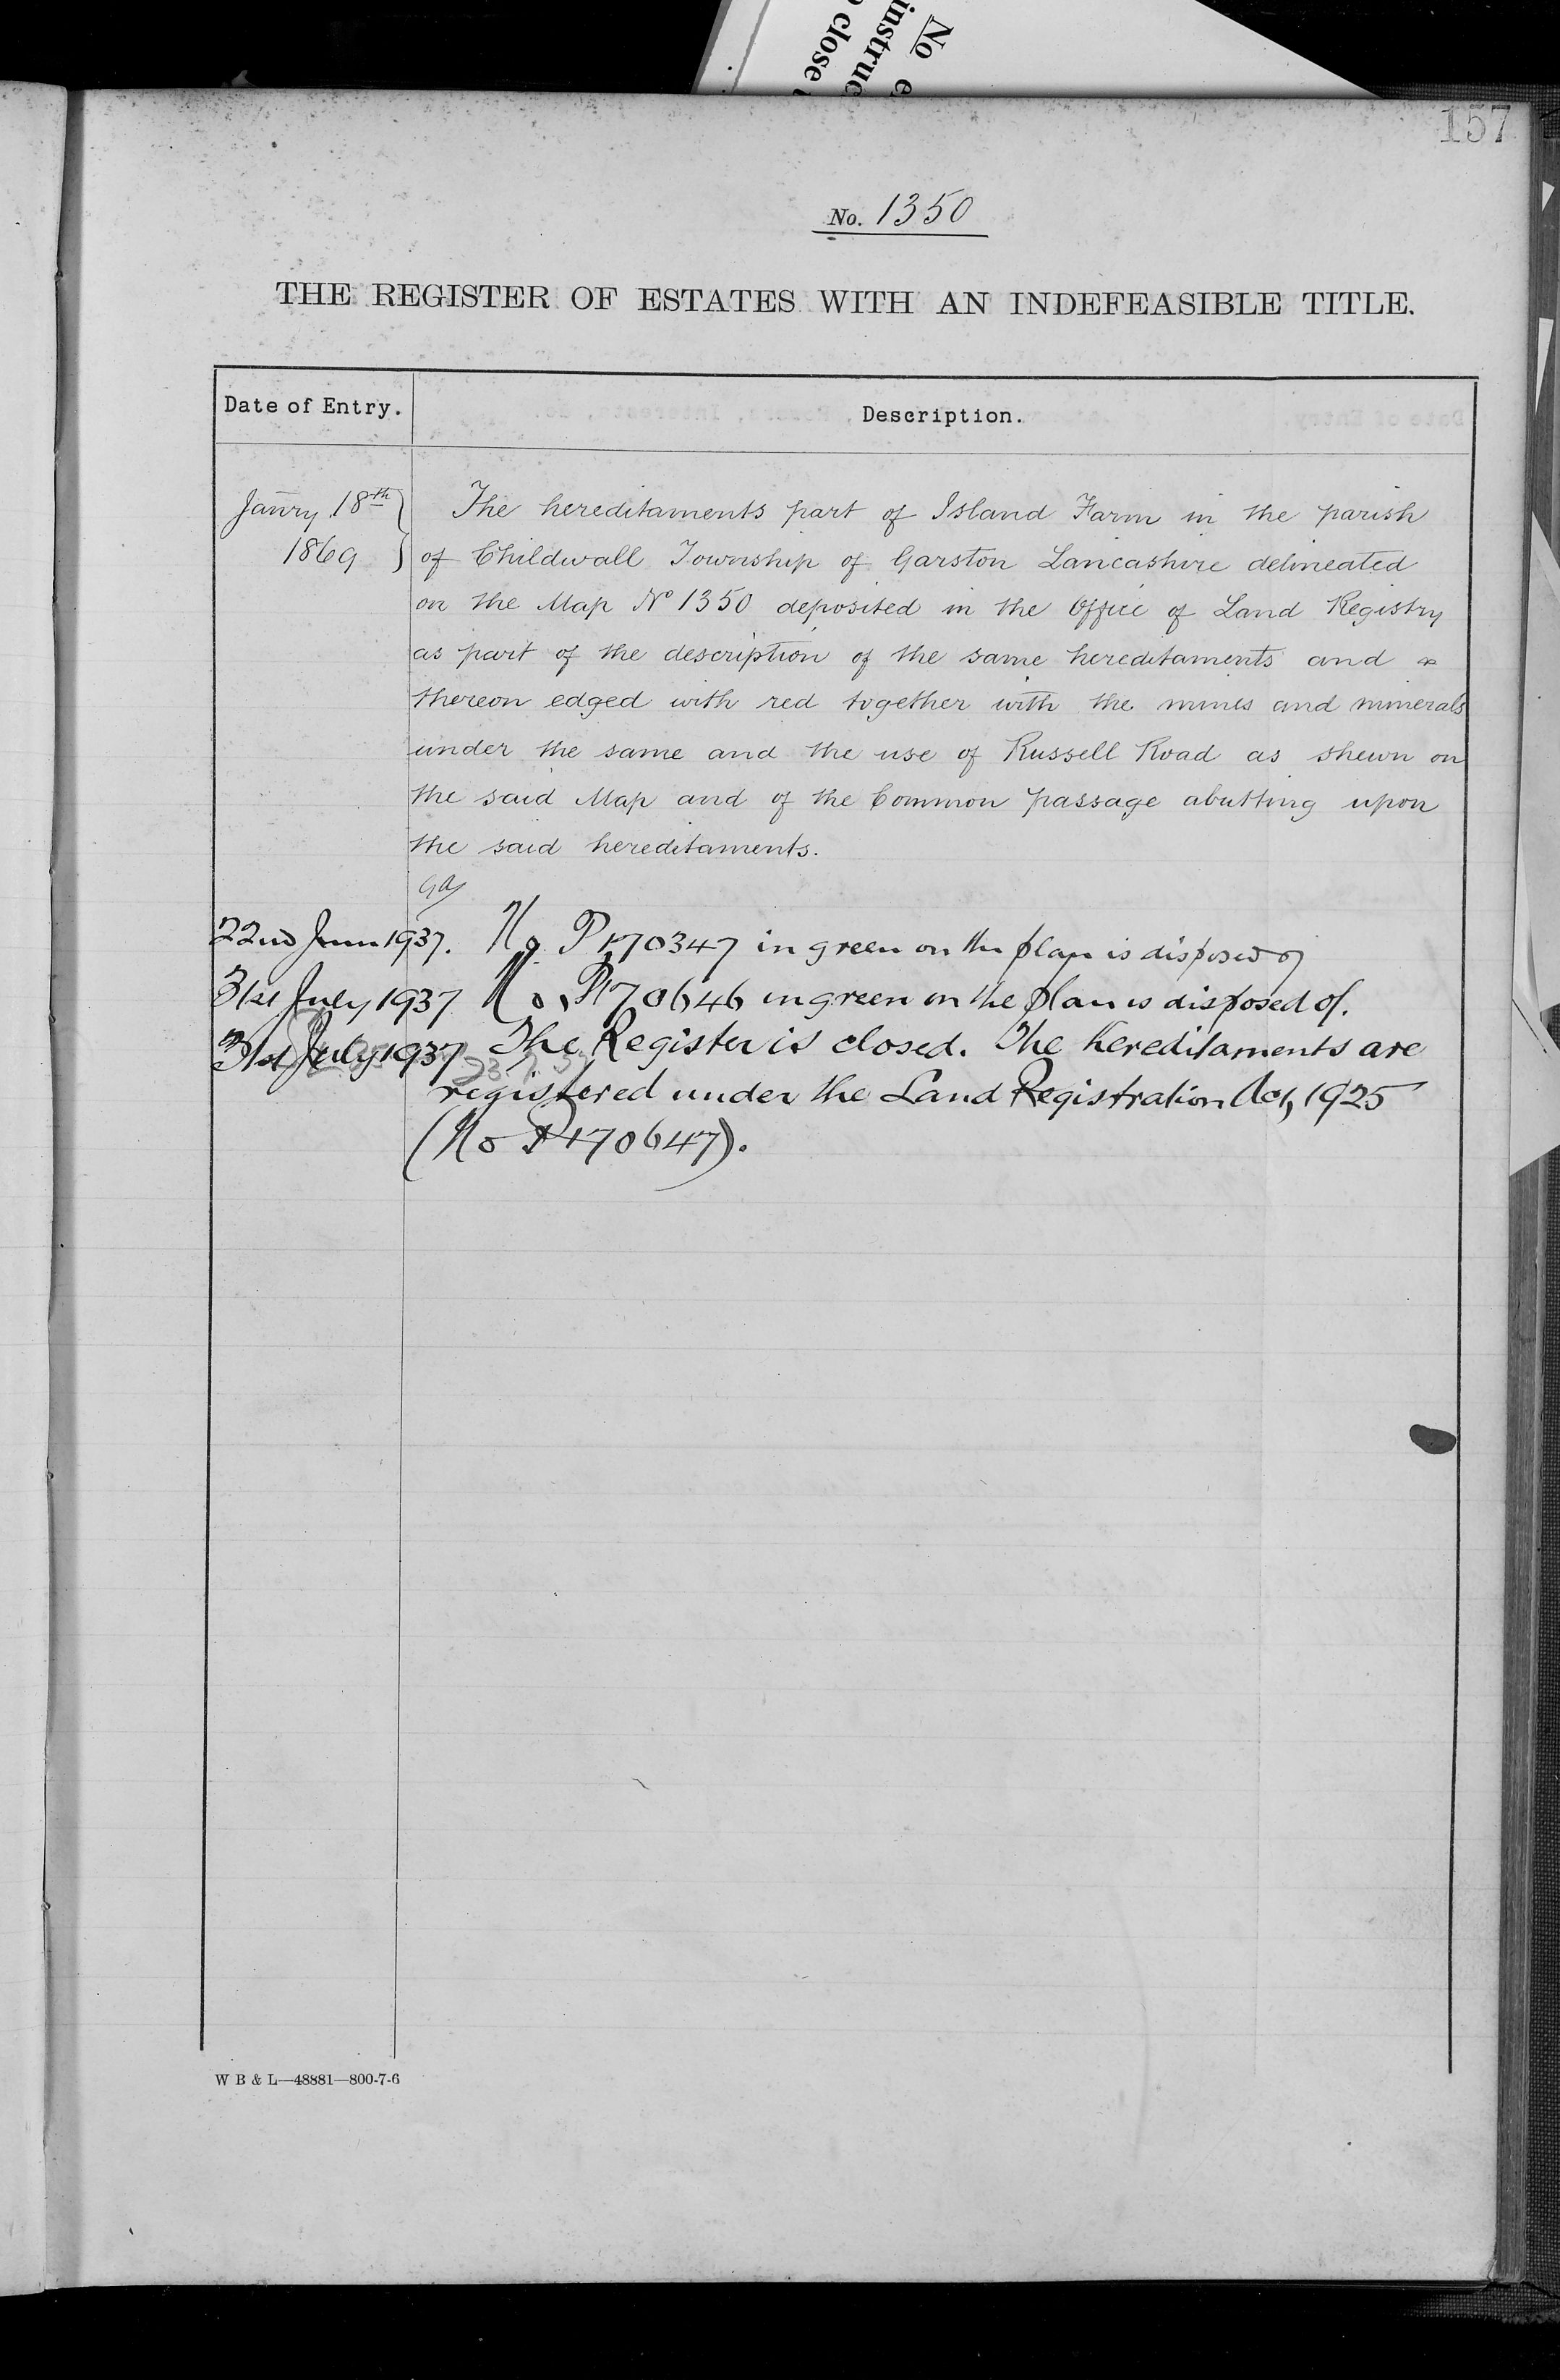 No
instruc
close
157
No. 1350
THE REGISTER OF ESTATES WITH AN INDEFEASIBLE TITLE.
Date of Entry. Description.
Janry 18th The hereditaments part of Island Farm in the parish
1869 of Childwall Township of Garston Lancashire delineated
on the Map No 1350 deposited in the Office of Land Registry
as part of the description of the same hereditaments and
thereon edged with red together with the mines and minerals
under the same and the use of Russell Road as shewn on
the said Map and of the Common passage abutting upon
the said hereditaments.
22nd June 1937. No P170347 in green on the plan is disposed of
31st July 1937 No P170646 in green on the plan is disposed of.
31st July 1937 The Register is closed. The hereditaments are
registered under the Land Registration Act, 1925
(No P170647).
W B & L—48881—800-7-6